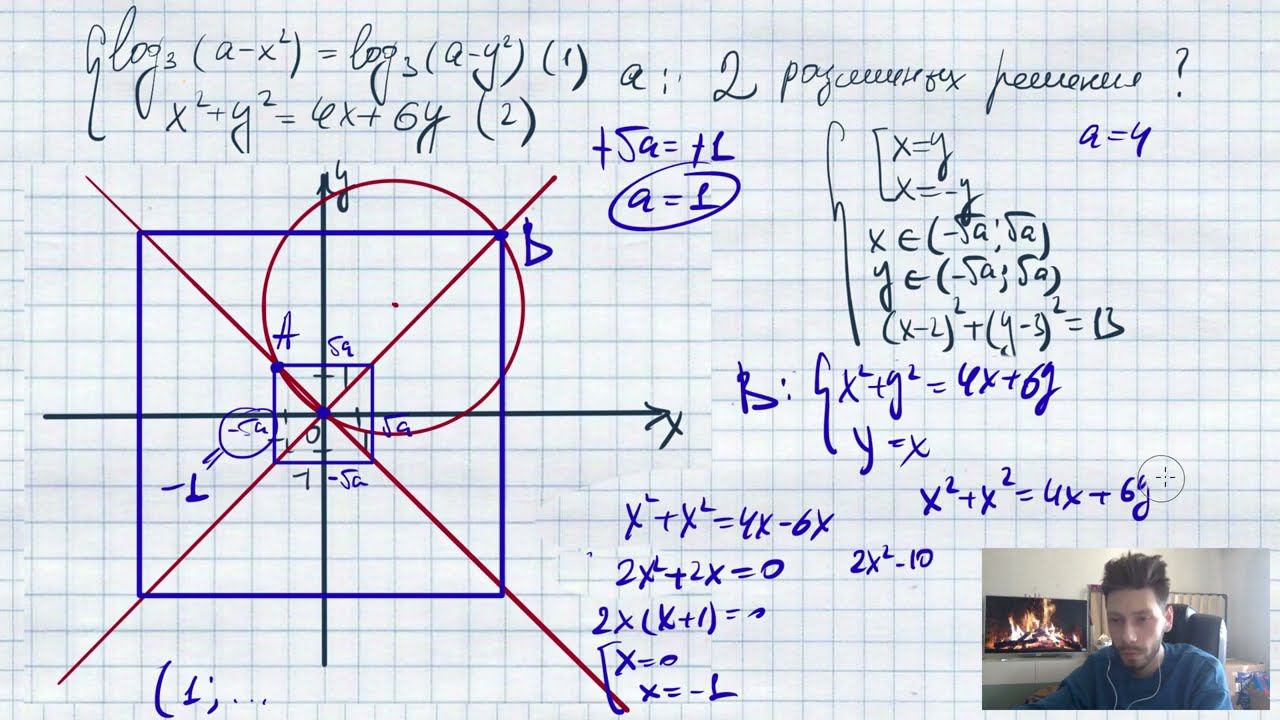 log₃(a-x²) = log₃(a-y²) (1)
x²+y² = 4x+6y (2)
a: 2 различных решения ?
+√a = +1
a = 1
a = 4
x=y
x=-y
x ∈ (-√a; √a)
y ∈ (-√a; √a)
(x-2)²+(y-3)² = 13
y
B
A
√a
-√a
0
√a
x
-1
-1
-√a
B: x²+y² = 4x+6y
y = x
x²+x² = 4x+6y
x²+x² = 4x-6x
2x²+2x = 0
2x²-10
2x(x+1) = 0
x=0
x=-1
(1; ...